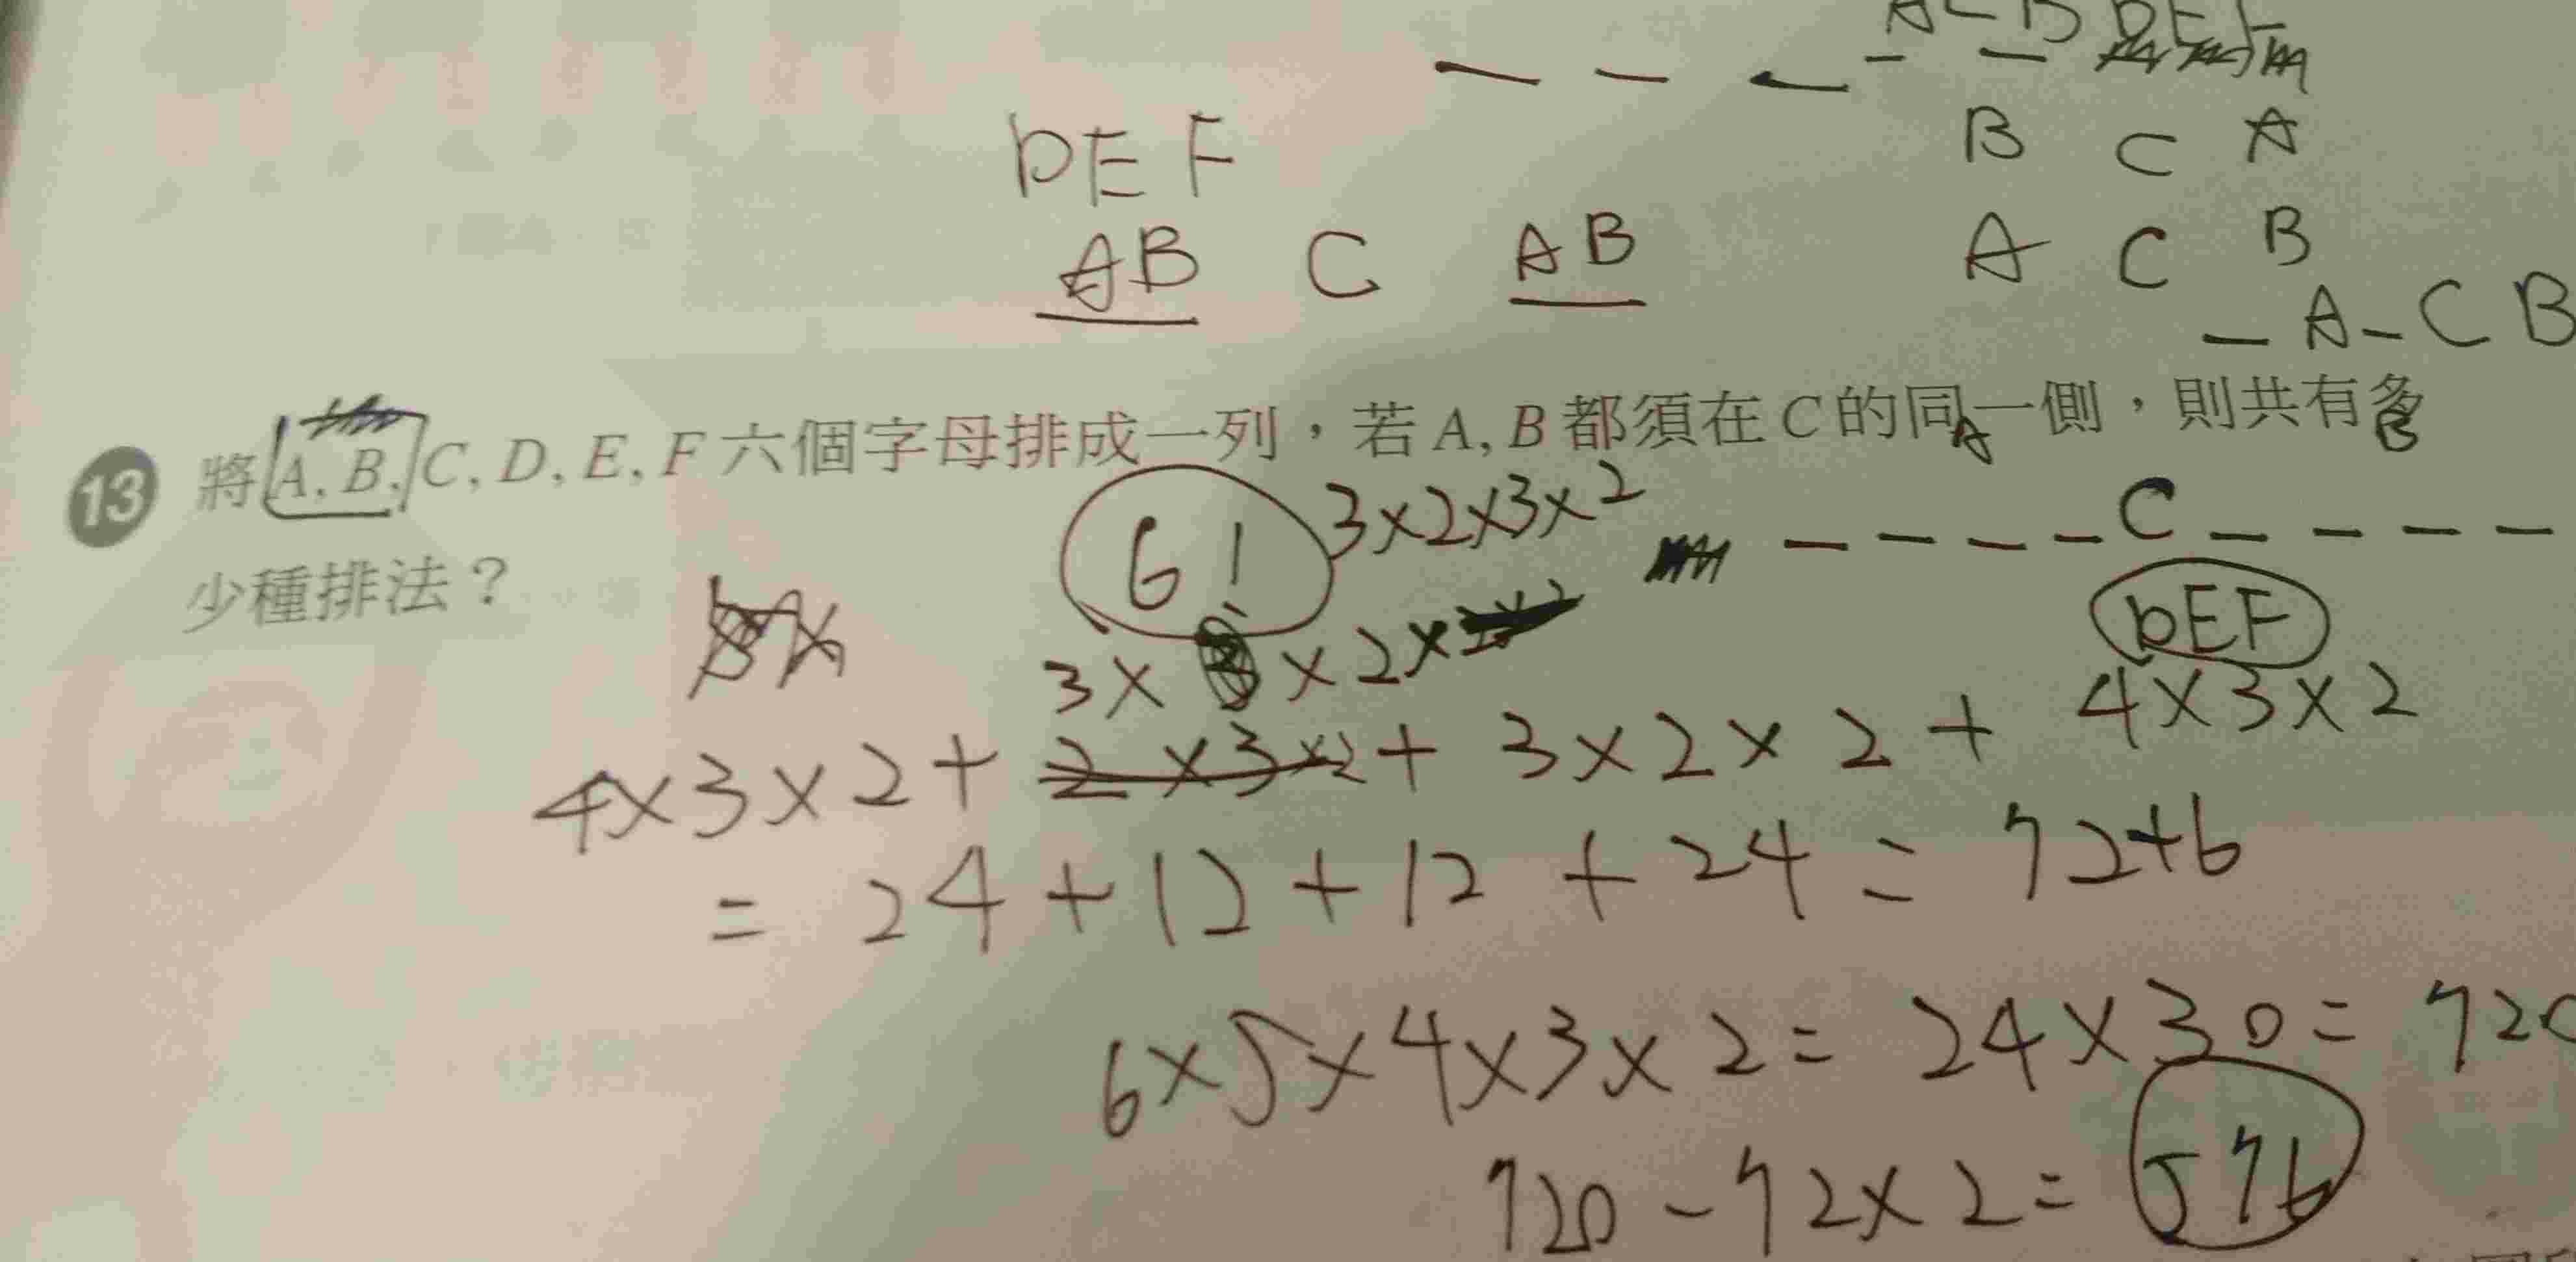 A C B DEF
DEF
B C A
AB C AB
A C B
_ A _ C B
13 將A, B, C, D, E, F六個字母排成一列，若A, B都須在C的同一側，則共有多
少種排法？
A B
6! 3×2×3×2
_ _ _ _ C _ _ _ _
DEF
3× ×2×
4×3×2+ 2×3×2+ 3×2×2+ 4×3×2
= 24+12+12+24= 72+6
6×5×4×3×2= 24×30= 720
720-72×2= 576